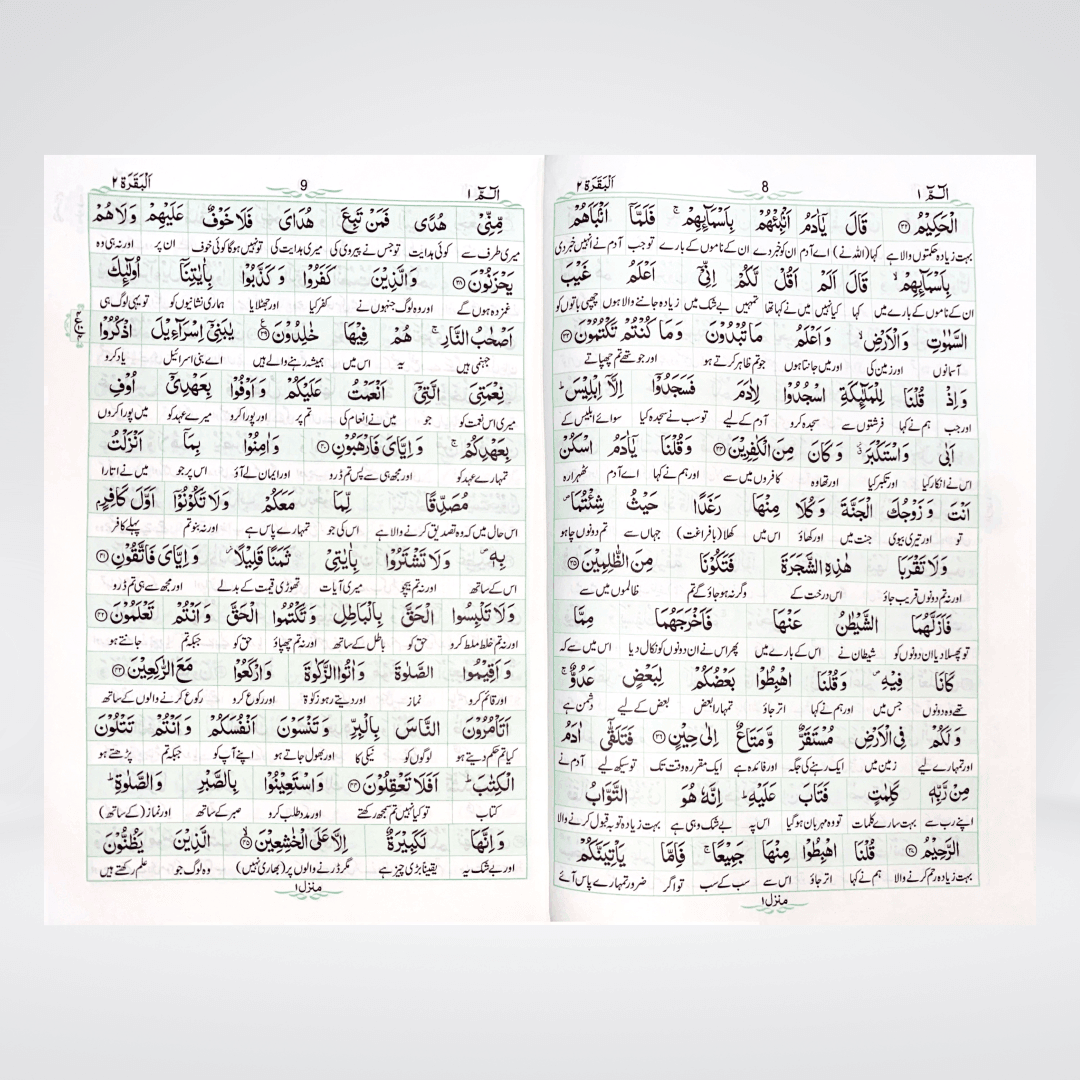 الٓمّٓ ۱
8
اَلْبَقَرَة ۲
الْحَكِيْمُ ﴿۳۲﴾ قَالَ يٰٓاٰدَمُ اَنْۢبِئْهُمْ بِاَسْمَآئِهِمْ ۚ فَلَمَّاۤ اَنْۢبَاَهُمْ
بہت زیادہ حکمتوں والا ہے کہا (اللہ نے) اے آدم ان کو خبر دے ان کے ناموں کے بارے تو جب آدم نے انہیں خبر دی
بِاَسْمَآئِهِمْ ۙ قَالَ اَلَمْ اَقُلْ لَّكُمْ اِنِّيْۤ اَعْلَمُ غَيْبَ
ان کے ناموں کے بارے میں کہا کیا نہیں میں نے کہا تھا تمہیں بے شک میں زیادہ جاننے والا ہوں چھپی باتوں کو
السَّمٰوٰتِ وَ الْاَرْضِ ۙ وَ اَعْلَمُ مَا تُبْدُوْنَ وَ مَا كُنْتُمْ تَكْتُمُوْنَ ﴿۳۳﴾
آسمانوں اور زمین کی اور میں جانتا ہوں جو تم ظاہر کرتے ہو اور جو تھے تم چھپاتے
وَ اِذْ قُلْنَا لِلْمَلٰٓئِكَةِ اسْجُدُوْا لِاٰدَمَ فَسَجَدُوْۤا اِلَّاۤ اِبْلِيْسَ ؕ
اور جب ہم نے کہا فرشتوں سے سجدہ کرو آدم کے لیے تو سب نے سجدہ کیا سوائے ابلیس کے
اَبٰى وَ اسْتَكْبَرَ ۗ وَ كَانَ مِنَ الْكٰفِرِيْنَ ﴿۳۴﴾ وَ قُلْنَا يٰٓاٰدَمُ اسْكُنْ
اس نے انکار کیا اور تکبر کیا اور تھا وہ کافروں میں سے اور ہم نے کہا اے آدم ٹھہرا رہ
اَنْتَ وَ زَوْجُكَ الْجَنَّةَ وَ كُلَا مِنْهَا رَغَدًا حَيْثُ شِئْتُمَا ۪
تو اور تیری بیوی جنت میں اور کھاؤ اس میں کھلا (بافراغت) جہاں سے تم دونوں چاہو
وَ لَا تَقْرَبَا هٰذِهِ الشَّجَرَةَ فَتَكُوْنَا مِنَ الظّٰلِمِيْنَ ﴿۳۵﴾
اور نہ تم دونوں قریب جاؤ اس درخت کے وگرنہ ہو جاؤ گے تم ظالموں میں سے
فَاَزَلَّهُمَا الشَّيْطٰنُ عَنْهَا فَاَخْرَجَهُمَا مِمَّا
تو پھسلا دیا ان دونوں کو شیطان نے اس کے بارے میں پھر اس نے ان دونوں کو نکال دیا اس میں سے کہ
كَانَا فِيْهِ ۪ وَ قُلْنَا اهْبِطُوْا بَعْضُكُمْ لِبَعْضٍ عَدُوٌّ ۚ
تھے وہ دونوں جس میں اور ہم نے کہا اتر جاؤ تمہارا بعض بعض کے لیے دشمن ہے
وَ لَكُمْ فِي الْاَرْضِ مُسْتَقَرٌّ وَّ مَتَاعٌ اِلٰى حِيْنٍ ﴿۳۶﴾ فَتَلَقّٰۤى اٰدَمُ
اور تمہارے لیے زمین میں ایک رہنے کی جگہ اور فائدہ ہے ایک مقررہ وقت تک تو سیکھ لیے آدم نے
مِنْ رَّبِّهٖ كَلِمٰتٍ فَتَابَ عَلَيْهِ ؕ اِنَّهٗ هُوَ التَّوَّابُ
اپنے رب سے بہت سارے کلمات تو وہ مہربان ہو گیا اس پہ بے شک وہی ہے بہت زیادہ توبہ قبول کرنے والا
الرَّحِيْمُ ﴿۳۷﴾ قُلْنَا اهْبِطُوْا مِنْهَا جَمِيْعًا ۚ فَاِمَّا يَاْتِيَنَّكُمْ
بہت زیادہ رحم کرنے والا ہم نے کہا اتر جاؤ اس سے سب کے سب تو اگر ضرور تمہارے پاس آئے
منزل ۱
الٓمّٓ ۱
9
اَلْبَقَرَة ۲
مِّنِّيْ هُدًى فَمَنْ تَبِعَ هُدَايَ فَلَا خَوْفٌ عَلَيْهِمْ وَ لَا هُمْ
میری طرف سے کوئی ہدایت تو جس نے پیروی کی میری ہدایت کی تو نہیں ہوگا کوئی خوف ان پر اور نہ ہی وہ
يَحْزَنُوْنَ ﴿۳۸﴾ وَ الَّذِيْنَ كَفَرُوْا وَ كَذَّبُوْا بِاٰيٰتِنَاۤ اُولٰٓئِكَ
غمزدہ ہوں گے اور وہ لوگ جنہوں نے کفر کیا اور جھٹلایا ہماری نشانیوں کو تو یہی لوگ ہی
اَصْحٰبُ النَّارِ ۚ هُمْ فِيْهَا خٰلِدُوْنَ ﴿۳۹﴾ يٰبَنِيْۤ اِسْرَآءِيْلَ اذْكُرُوْا
جہنمی ہیں یہ اس میں ہمیشہ رہنے والے ہیں اے بنی اسرائیل یاد کرو
نِعْمَتِيَ الَّتِيْۤ اَنْعَمْتُ عَلَيْكُمْ وَ اَوْفُوْا بِعَهْدِيْۤ اُوْفِ
میری اس نعمت کو جو میں نے انعام کی تم پر اور پورا کرو میرے عہد کو میں پورا کروں
بِعَهْدِكُمْ ۚ وَ اِيَّايَ فَارْهَبُوْنِ ﴿۴۰﴾ وَ اٰمِنُوْا بِمَاۤ اَنْزَلْتُ
تمہارے عہد کو اور مجھ ہی سے پس تم ڈرو اور ایمان لے آؤ اس پر جو میں نے اتارا
مُصَدِّقًا لِّمَا مَعَكُمْ وَ لَا تَكُوْنُوْۤا اَوَّلَ كَافِرٍۭ
اس حال میں کہ وہ تصدیق کرنے والا ہے اس کی جو تمہارے پاس ہے اور نہ بنو تم پہلے کافر
بِهٖ ۪ وَ لَا تَشْتَرُوْا بِاٰيٰتِيْ ثَمَنًا قَلِيْلًا ۫ وَّ اِيَّايَ فَاتَّقُوْنِ ﴿۴۱﴾
اس کے ساتھ اور نہ تم بیچو میری آیات تھوڑی قیمت کے بدلے اور مجھ سے ہی تم ڈرو
وَ لَا تَلْبِسُوا الْحَقَّ بِالْبَاطِلِ وَ تَكْتُمُوا الْحَقَّ وَ اَنْتُمْ تَعْلَمُوْنَ ﴿۴۲﴾
اور نہ تم خلط ملط کرو حق کو باطل کے ساتھ اور نہ تم چھپاؤ حق کو جبکہ تم جانتے ہو
وَ اَقِيْمُوا الصَّلٰوةَ وَ اٰتُوا الزَّكٰوةَ وَ ارْكَعُوْا مَعَ الرّٰكِعِيْنَ ﴿۴۳﴾
اور قائم کرو نماز اور دیتے رہو زکوٰۃ اور رکوع کرو رکوع کرنے والوں کے ساتھ
اَتَاْمُرُوْنَ النَّاسَ بِالْبِرِّ وَ تَنْسَوْنَ اَنْفُسَكُمْ وَ اَنْتُمْ تَتْلُوْنَ
کیا تم حکم دیتے ہو لوگوں کو نیکی کا اور بھول جاتے ہو اپنے آپ کو جبکہ تم پڑھتے ہو
الْكِتٰبَ ؕ اَفَلَا تَعْقِلُوْنَ ﴿۴۴﴾ وَ اسْتَعِيْنُوْا بِالصَّبْرِ وَ الصَّلٰوةِ ؕ
کتاب تو کیا نہیں تم سمجھ رکھتے اور مدد طلب کرو صبر کے ساتھ اور نماز (کے ساتھ)
وَ اِنَّهَا لَكَبِيْرَةٌ اِلَّا عَلَى الْخٰشِعِيْنَ ﴿۴۵﴾ الَّذِيْنَ يَظُنُّوْنَ
اور بے شک یہ یقیناً بڑی چیز ہے مگر ڈرنے والوں پر (بھاری نہیں) وہ لوگ جو علم رکھتے ہیں
منزل ۱